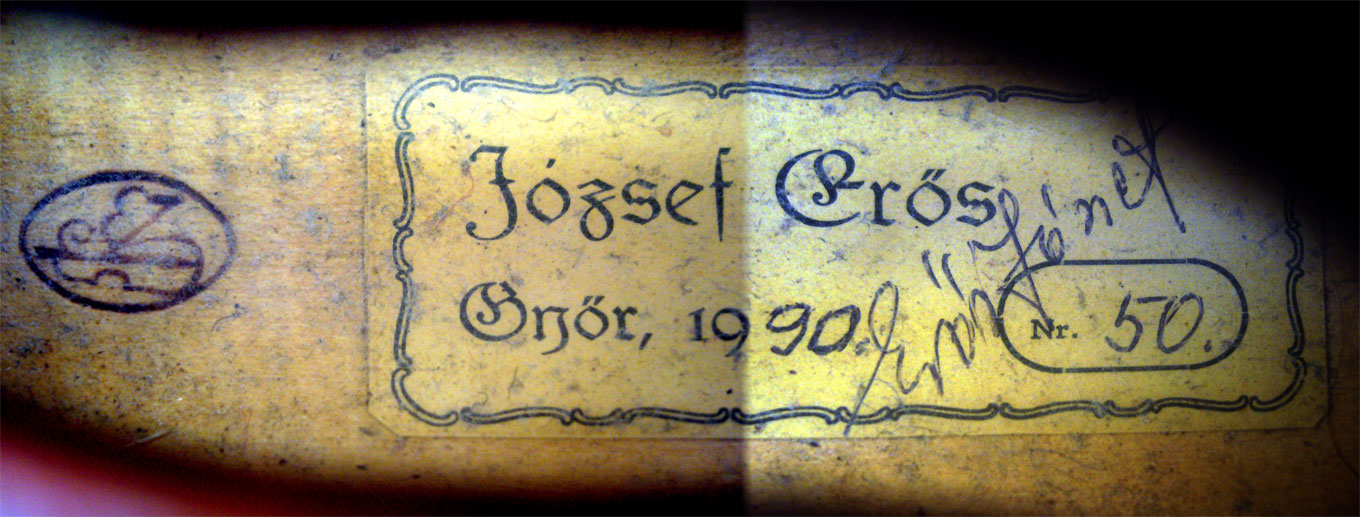 József Erős
Győr, 1990.
Nr. 50.
Erős József